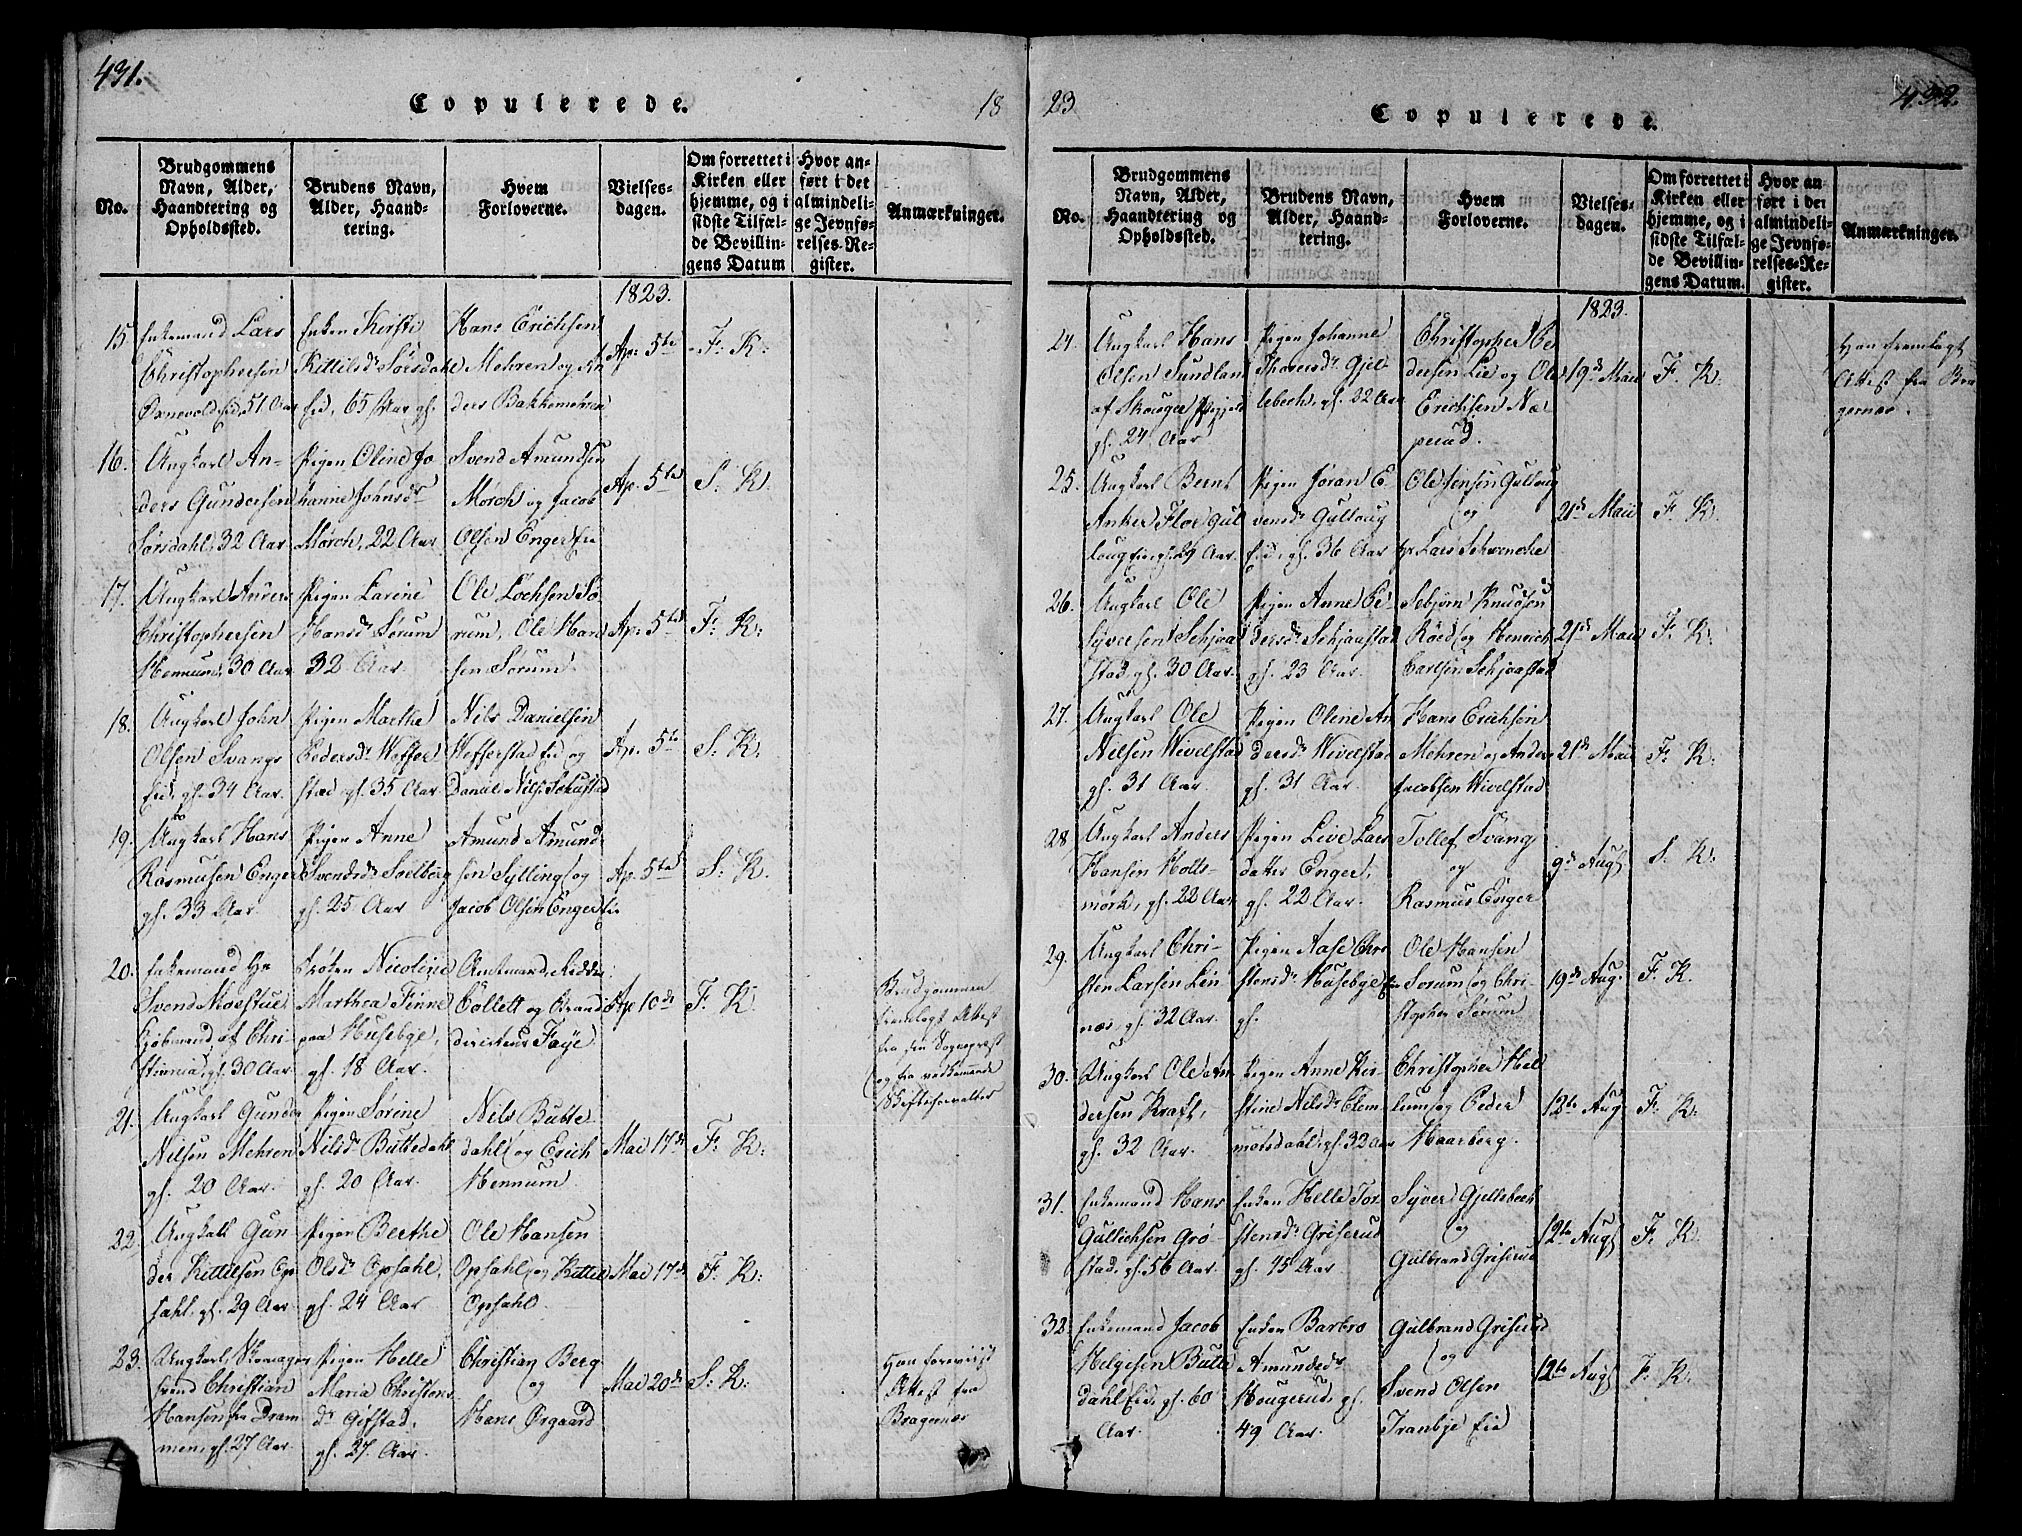 431.
Copulerede.
18
No.
Brudgommens Navn, Alder, Haandtering og Opholdssted.
Brudens Navn, Alder, Haandtering.
Hvem Forloverne.
Vielsesdagen.
Om forrettet i Kirken eller hjemme, og i sidste Tilfælde Bevillingens Datum
Hvor anført i det almindelige Jevnførelses-Register.
Anmærkninger.
1823.
15.
Enkemand Lars
Christophersen
Øxnevold Eid, 51 Aar
Enken Kirsti
Kittilsdr Sørsdahl
Eid, 65 Aar gl.
Hans Erichsen
Mehren og An
ders Bakkemehren
Ap: 5te
F: K:
16.
Ungkarl An-
ders Gundersen
Sørsdahl, 32 Aar
Pigen Oline Jo
hanne Johnsdr
Mørch, 22 Aar
Svend Amundsen
Mørch og Jacob
Olsen Enger Eie
Ap. 5te
S. K.
17.
Ungkarl
Christophersen
Hennum, 30 Aar
Pigen Larine
Hansdr Sørum
32 Aar.
Ole Lochsen Sø
rum, Ole Han
sen Sørum
Ap: 5te
F: K:
18.
Ungkarl John
Olsen Svangs
Eid, gl. 34 Aar.
Pigen Marthe
Pedersdr Weffer
stad gl. 35 Aar
Nils Danielsen
Wefferstad Eid og
Daniel Nils.
Ap. 5te
S. K.
19.
Ungkarl Hans
Rasmusen Enger
gl. 33 Aar.
Pigen Anne
Svendsdr Solberg
gl. 25 Aar
Amund Amund
sen Sylling og
Jacob Olsen Enger Eie
Ap. 5te
S: K.
20.
Enkemand Hr
Svend Moestue
Kjøbmand af Chri-
stiania, gl. 30 Aar
Frøken Nicoline
Marthea Finne
paa Husebye,
gl. 18 Aar.
Amtmand, Ridder
Collett og Brand
directeur Faye.
Ap. 10de
F. K.
Brudgommen
fremlagt Attest
fra sin Sognepræst
og fra vedkommende
Skifteforvalter
21.
Ungkarl Gunder
Nilsen Mehren
gl. 20 Aar.
Pigen Sørine
Nilsdr Buttedahl
gl. 20 Aar.
Nils Butte
dahl og Erich
Hennum
Mai 17de
F. K:
22.
Ungkarl Gun
der Kittilsen Op
sahl. gl. 29 Aar
Pigen Berthe
Olsdr Opsahl,
gl. 24 Aar
Ole Hansen
Opsahl og Kittil
Opsahl
Mai 17de
F. K:
23.
Ungkarl, Skomager
svend Christian
Hansen fra Dram
men, gl. 27 Aar.
Pigen Helle
Maria Christens
dr Gifstad,
gl. 27. Aar
Christian Berg
og
Hans Ørgaard
Mai 20de
S: K:
Han foreviist
Attest fra
Bragernæs
23
Copulerede.
432.
No.
Brudgommens Navn, Alder, Haandtering og Opholdssted.
Brudens Navn, Alder, Haandtering.
Hvem Forloverne.
Vielsesdagen.
Om forrettet i Kirken eller hjemme, og i sidste Tilfælde Bevillingens Datum.
Hvor anført i det almindelige Jevnførelses-Register.
Anmærkninger.
1823.
24.
Ungkarl Hans
Olsen Sundland
af Skouger
gl. 24 Aar
Pigen Johanne
Thoresdr Gjel-
lebech, gl. 22 Aar
Christopher Pe
dersen Lie og Ole
Erichsen Næ
perud.
19de Mai
F. K:
Han fremlagt
Attest fra Bra
gernæs.
25.
Ungkarl Bernt
Anker Flor Gul
loug Eie, gl. 29 Aar.
Pigen Jøran E
vensdr Gulloug
Eid, gl. 36 Aar
Ole Jensen Gulloug
og
Hr Lars Schwencke
21de Mai
F. K.
26.
Ungkarl Ole
Syversen Schjøl
stad, gl. 30 Aar.
Pigen Anne Pe-
dersdr Schjølstad
gl. 23 Aar.
Sebjørn Knudsen
Røed og Henrich
Carlsen Schjølstad
21de Mai
F. K:
27.
Ungkarl Ole
Nilsen Wivelstad
gl. 31 Aar.
Pigen Oline An
dersdr Wivelstad
gl. 31 Aar.
Hans Erichsen
Mehren og Anders
Jacobsen Wivelstad
21de Mai
F. K:
28.
Ungkarl Anders
Hansen Holts-
mørk, gl. 22 Aar.
Pigen Live Lars
datter Enger,
gl. 22 Aar.
Tollef Svang
og
Rasmus Enger
9de Augt
S. K:
29.
Ungkarl Chri-
sten Larsen Lin
næs, gl. 32 Aar.
Pigen Aase Chri
stensdr Husebye Eie
gl.
Ole Hansen
Sørum og Chri-
stopher Sørum
19de Aug.
F. K.
30.
Ungkarl Ole An
dersen Kraft,
gl. 32 Aar.
Pigen Anne Kir
stine Nilsdr Clem
metsdahl, gl. 32 Aar
Christopher Hel
lum og Peder
Haarberg.
12te Aug
F: K:
31.
Enkemand Hans
Gullichsen Grø-
stad, gl. 56 Aar.
Enken Helle Tor
stensdr Griserud
gl. 45 Aar
Syver Gjellebech
og
Gulbrand Griserud
12te Augt
F: K.
32.
Enkemand Jacob
Helgesen Butte
dahl Eid, gl. 60
Aar.
Enken Barbro
Amundsdr
Hougerud, gl.
49 Aar.
Gulbrand Griserud
og
Svend Olsen
Tranbye Eie
12te Augt
F. K.